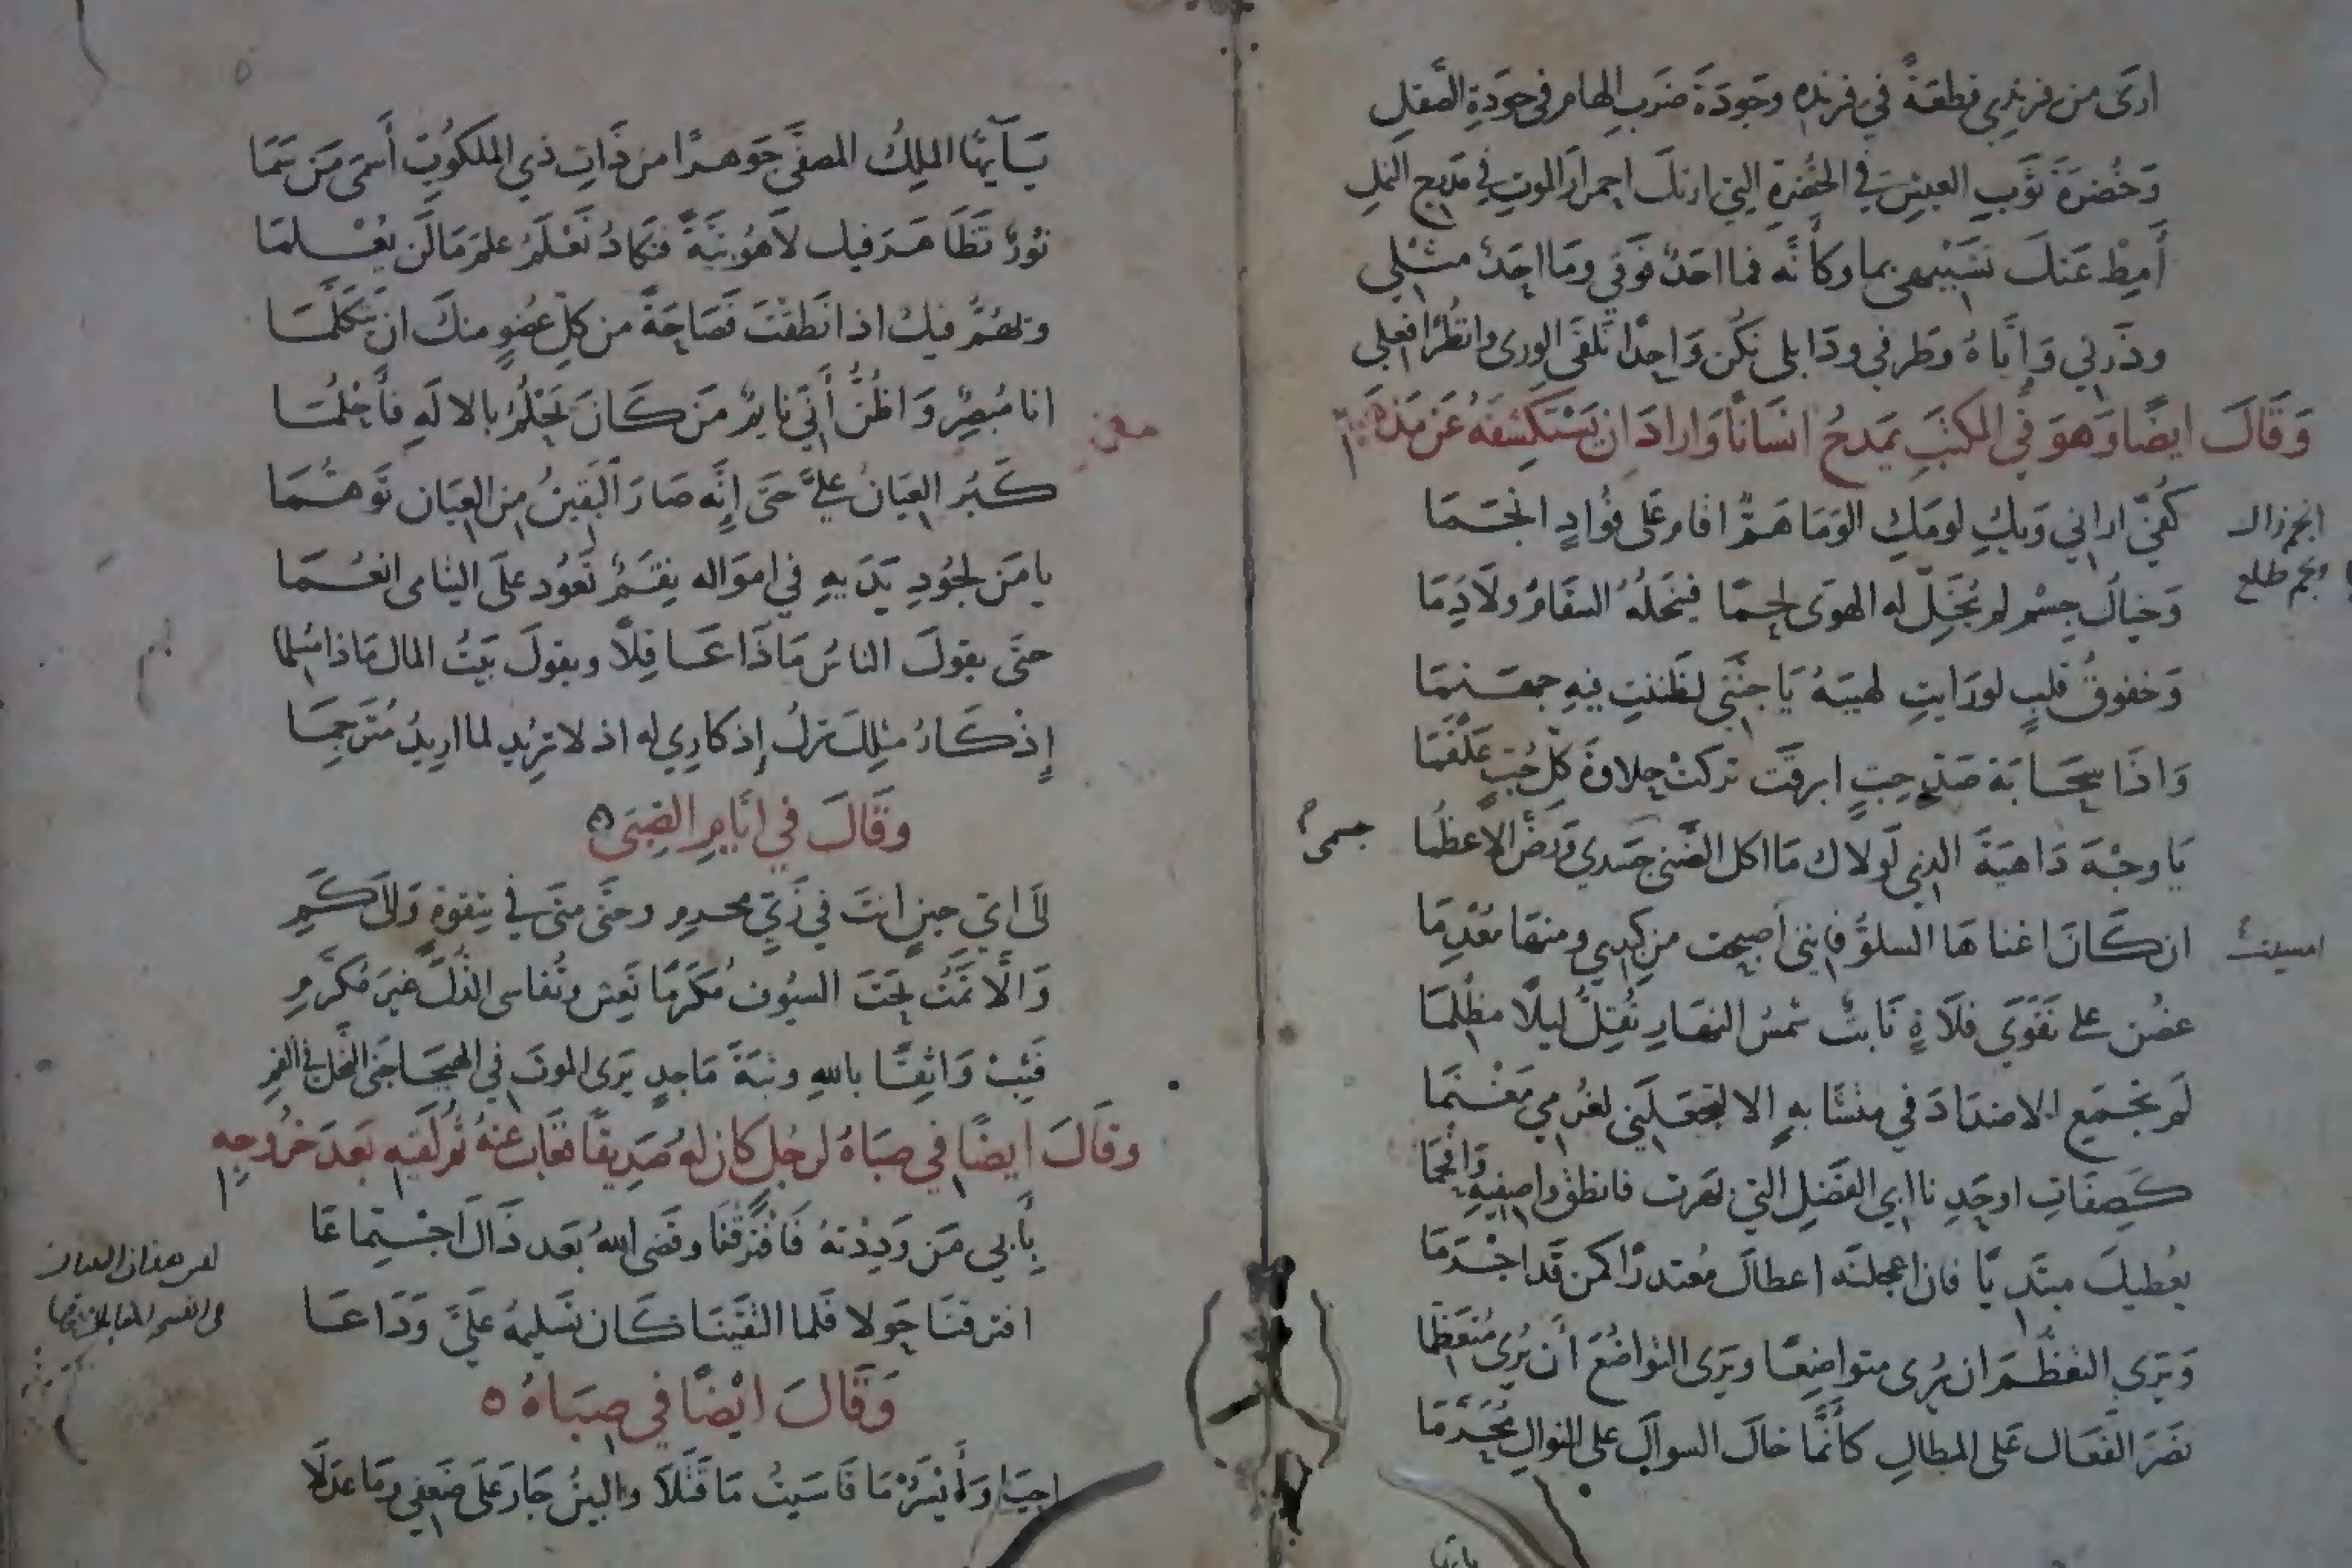 ارى من فرندي قطعة في فرنده وجودة ضرب الهام في جودة الصقل
وخضرة ثوب العيش في الخضرة التي ارتك احمرار الموت في مدرج النمل
أمط عنك تشبيهي بما وكأنه فما احد فوقي وما احد مثلي
وذرني وإياه وطرفي وذابلي نكن واحدا نلقى الورى وانظرا فعلي
وقال ايضا وهو في المكتب يمدح انسانا واراد ان يستكشفه عن مذهبه
كفي اراني ويك لومك الوما هم اقام على فؤاد انجما
انجم زال
ونجم طلع
وخيال جسم لم يخل له الهوى لحما فينحله السقام ولا دما
وخفوق قلب لو رايت لهيبه يا جنتي لظننت فيه جهنما
واذا سحابة صد حب ابرقت تركت حلاوة كل حب علقما
يا وجه داهية الذي لولاك ما اكل الضنى جسدي ورض الاعظما
جسمي
ان كان اغناها السلو فانني اصبحت من كبدي ومنها معدما
امسيت
غصن على نقوي فلاة نابت شمس النهار تقل ليلا مظلما
لم تجمع الاضداد في متشابه الا لتجعلني لغرمي مغنما
كصفات اوحدنا ابي الفضل التي بهرت فانطق واصفيه وافحما
يعطيك مبتديا فان اعجلته اعطاك معتذرا كمن قد اجرما
ويرى التعظم ان يرى متواضعا ويرى التواضع أن يرى متعظما
نصر الفعال على المطال كأنما خال السوال على النوال محرما
يا أيها الملك المصفى جوهرا من ذات ذي الملكوت أسمى من سما
نور تظاهر فيك لاهوتية فتكاد تعلم علم ما لن يعلما
ويهم فيك اذا نطقت فصاحة من كل عضو منك ان يتكلما
انا مبصر واظن أني نايم من كان يحلم بالاله فأحلما
كبر العيان علي حتى إنه صار اليقين من العيان توهما
يا من لجود يديه في امواله نقم تعود على اليتامى انعما
حتى يقول الناس ماذا عاقلا ويقول بيت المال ماذا مسلما
إذكار مثلك ترك إذكاري له اذ لا تريد لما اريد مترجما
وقال في ايام الصبى
الى اي حين انت في زي محرم وحتى متى في شقوة والى كم
والا تمت تحت السيوف مكرما تعش وتقاسي الذل غير مكرم
فثب واثقا بالله وثبة ماجد يرى الموت في الهيجا جنى النحل في الفم
وقال ايضا في صباه لرجل كان له صديقا فغاب عنه ثم لقيه بعد خروجه
بأبي من وددته فافترقنا وقضى الله بعد ذاك اجتماعا
افترقنا حولا فلما التقينا كان تسليمه علي وداعا
وقال ايضا في صباه
احيا وأيسر ما قاسيت ما قتلا والبين جار على ضعفي وما عدلا